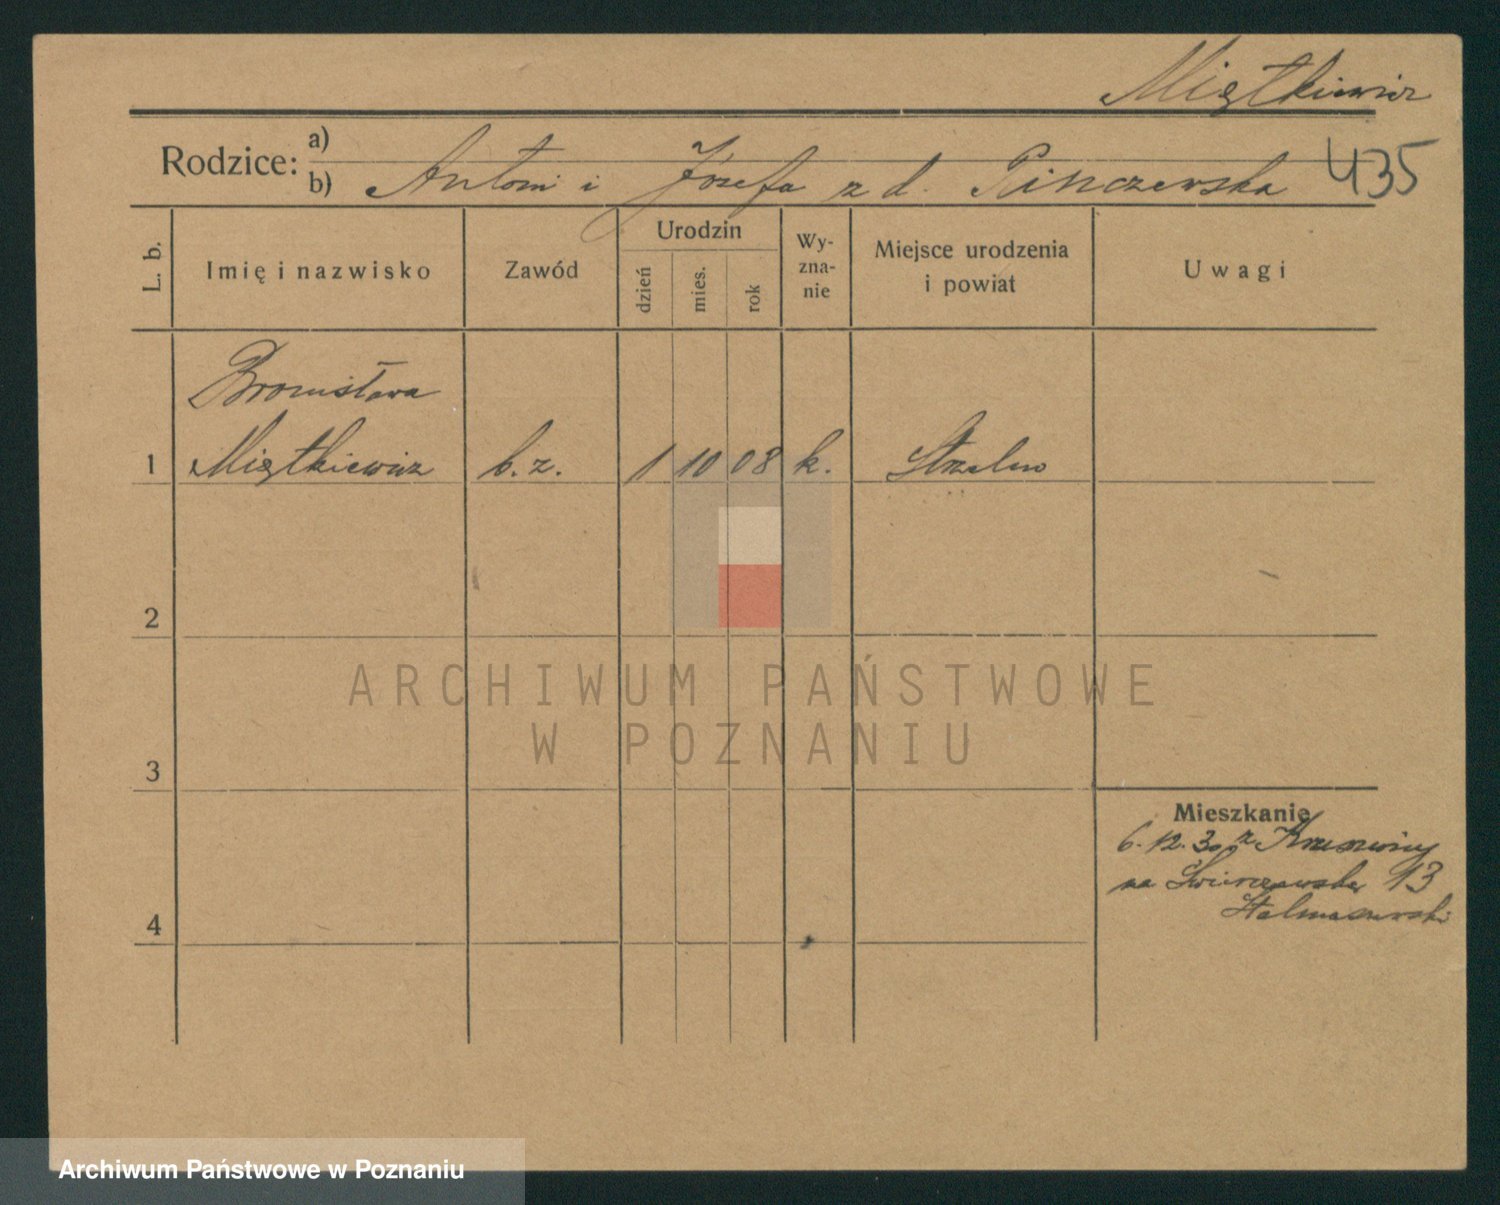 Miętkiewicz
Rodzice: a)
b) Antoni i Józefa z d. Pinczewska 435
L. b.
Imię i nazwisko
Zawód
Urodzin
dzień
mies.
rok
Wy-
zna-
nie
Miejsce urodzenia
i powiat
Uwagi
Bronisława
1 Miętkiewicz b. z. 1 10 08 k. Strzelno
2
3
4
Mieszkanie
6. 12. 30 z Kruszwicy
na Świerczewską 13
ARCHIWUM PAŃSTWOWE
W POZNANIU
Archiwum Państwowe w Poznaniu